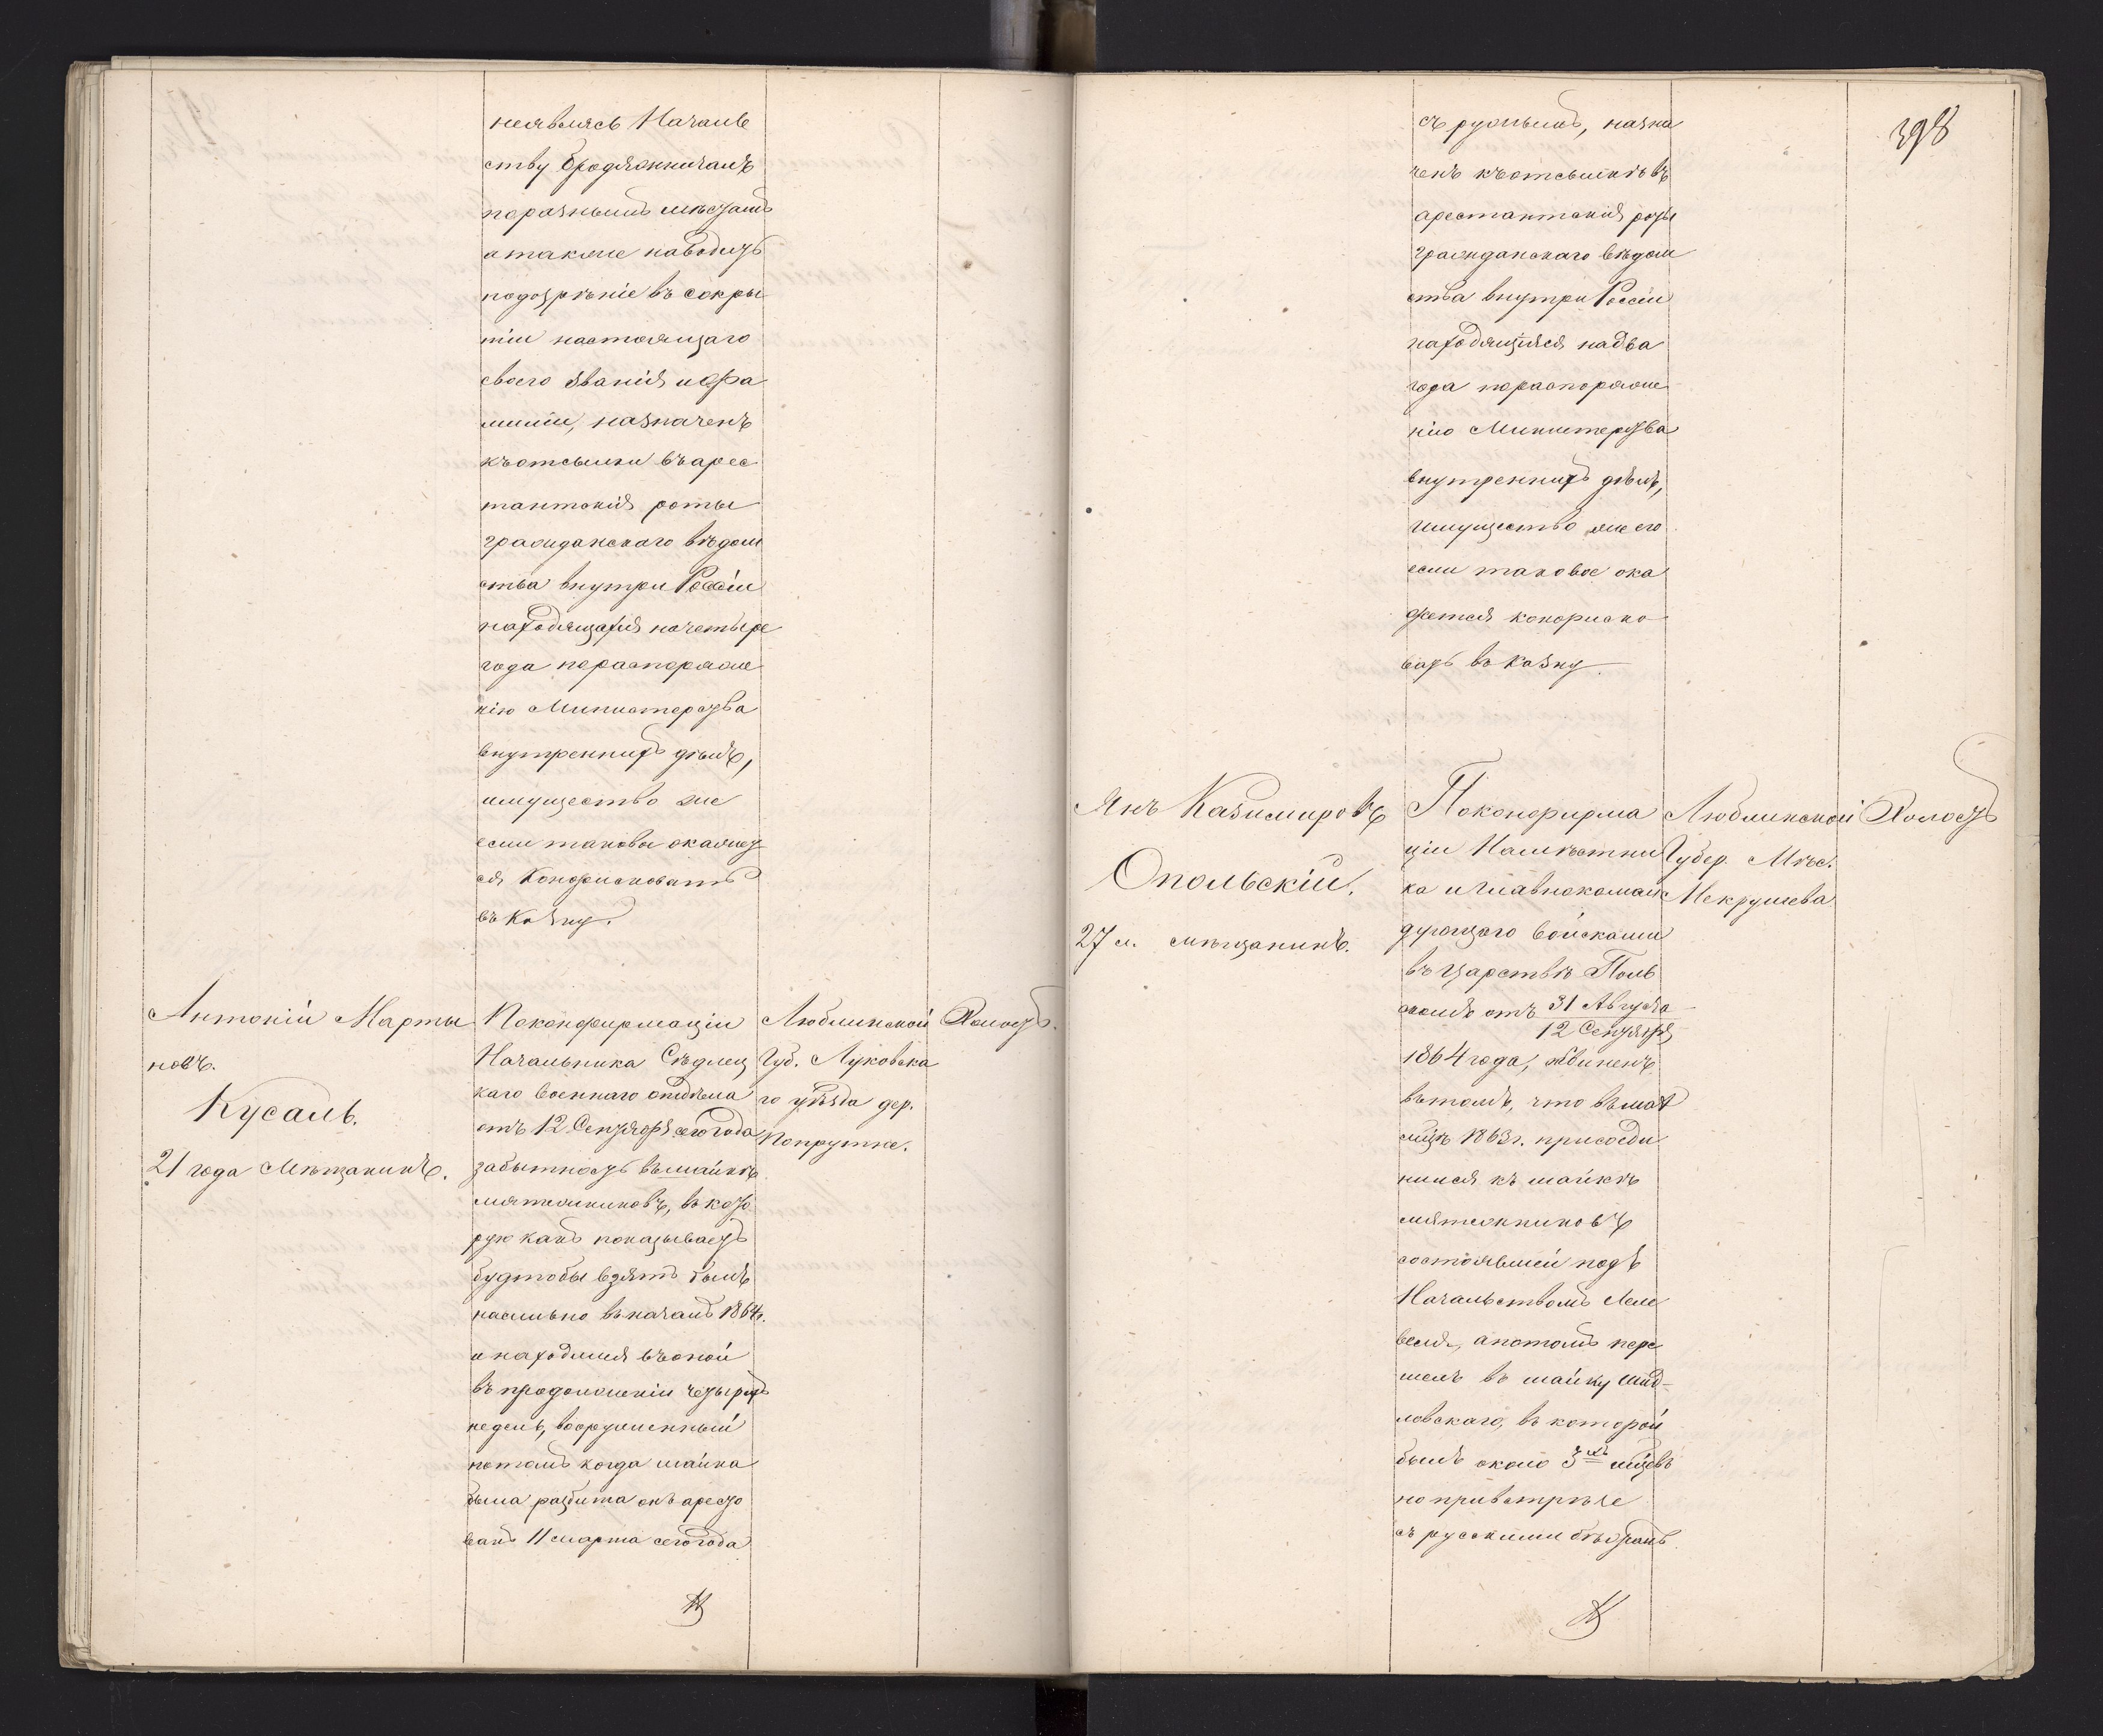 неявлясь Началь
ству бродяжничалъ
поразнымъ мѣстамъ
атакже наводитъ
подозрѣніе въ сокры
тіи настоящаго
своего званія ифа
миліи, назначенъ
къотсылки въарес
тантскія роты
гражданскаго вѣдом
ства внутри Россіи
находящіяся начетыре
года пораспоряже
нію Министерства
внутреннихъ дѣлъ,
имущество же
если таковое окажет
ся Конфисковать
въ Казну.
Антоній Марты
новъ.
Кусаль.
21 года Мѣщанинъ.
Поконфирмаціи
Начальника Сѣдлец
каго военнаго отдѣла
отъ 12 Сентября сегогода
забытность въшайкѣ
мятежниковъ, въ кото
рую какъ показываетъ
будтобы взятъ былъ
насильно въ началѣ 1864г.
инаходился въоной
въ продолженіи четырехъ
недель, вооруженный
потомъ когда шайка
была разбита онъ аресто
ванъ 11 марта сегогода
Люблинской
Губ. Луковска
го уѣзда дер.
Холостъ.
398
съ ружьемъ, назна
ченъ къотсылкѣ въ
арестантскія роты
гражданскаго вѣдом
ства внутри Россіи
находящіяся надва
года пораспоряже
нію Министерства
внутреннихъ дѣлъ,
имущество же его
если таковое ока
жется конфиско
вать въ Казну.
Янъ Казимировъ
Опольскій.
27 л. мѣщанинъ.
Поконфирма
ціи Намѣстни
ка и Главнокоман
дующаго войсками
въ Царствѣ Поль
скомъ отъ 31 Августа
12 Сентября
1864 года, обвиненъ
въ томъ, что въ маѣ
мцѣ 1863г. присоеди
нился къ шайкѣ
мятежниковъ
состоявшей подъ
Начальствомъ Леле
веля, апотомъ пере
шелъ въ шайку
ловскаго, въ которой
былъ около 3хъ мцевъ
но привстрѣче
съ русскими бѣжалъ
Люблинской
Губер. Мѣс.
Холостъ